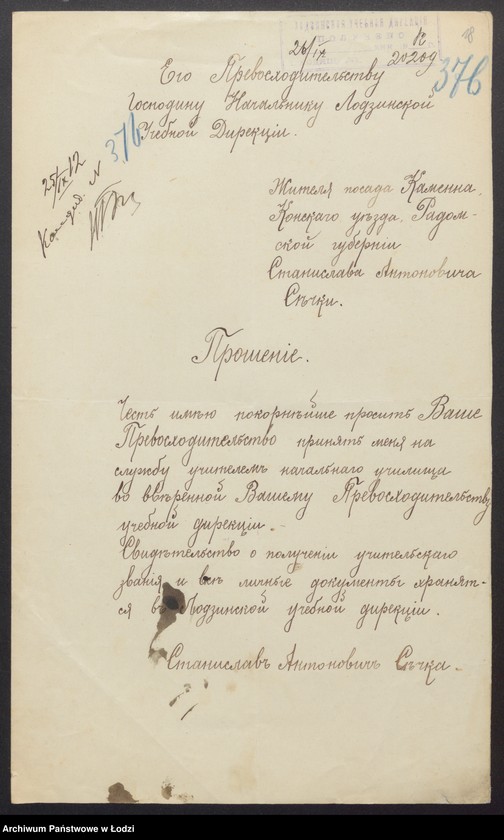 26/IX
20209
18
376
Его Превосходительству
Господину Начальнику Лодзинской
Учебной Дирекціи.
376
25/IX 12
Кандид. N
Жителя посада Каменна,
Конскаго уѣзда, Радом-
ской губерніи
Станислава Антоновича
Сѣчки.
Прошеніе.
Честь имѣю покорнѣйше просить Ваше
Превосходительство принять меня на
службу учителемъ начальнаго училища
во ввѣренной Вашему Превосходительству
учебной дирекціи.
Свидѣтельство о полученіи учительскаго
званія и всѣ личные документы хранят-
ся въ Лодзинской учебной дирекціи.
Станиславъ Антоновичъ Сѣчка.
Archiwum Państwowe w Łodzi